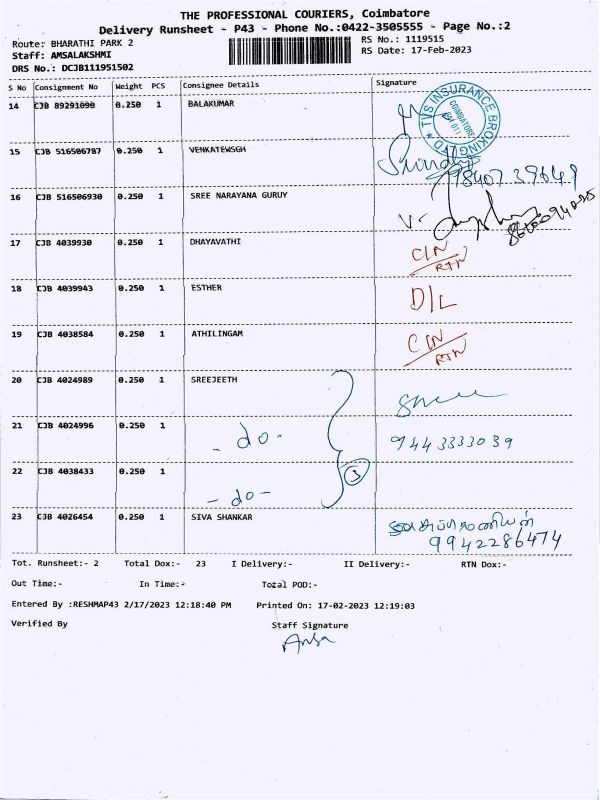 THE PROFESSIONAL COURIERS, Coimbatore
Delivery Runsheet - P43 - Phone No.:0422-3505555 - Page No.:2
Route: BHARATHI PARK 2 RS No.: 1119515
Staff: AMSALAKSHMI RS Date: 17-Feb-2023
DRS No.: DCJB111951502
S No Consignment No Weight PCS Consignee Details Signature
14 CJB 89291090 0.250 1 BALAKUMAR
TVS INSURANCE BROKING
COIMBATORE
15 CJB 516506787 0.250 1 VENKATEWSGH
9840739649
16 CJB 516506930 0.250 1 SREE NARAYANA GURUY
17 CJB 4039930 0.250 1 DHAYAVATHI C/N
RTN
18 CJB 4039943 0.250 1 ESTHER D/L
19 CJB 4038584 0.250 1 ATHILINGAM C/N
RTN
20 CJB 4024989 0.250 1 SREEJEETH Sree
21 CJB 4024996 0.250 1 - do - 9443333039
22 CJB 4038433 0.250 1 3
- do -
23 CJB 4026454 0.250 1 SIVA SHANKAR
9942286474
Tot. Runsheet:- 2 Total Dox:- 23 I Delivery:- II Delivery:- RTN Dox:-
Out Time:- In Time:- Total POD:-
Entered By :RESHMAP43 2/17/2023 12:18:40 PM Printed On: 17-02-2023 12:19:03
Verified By Staff Signature
Amsa